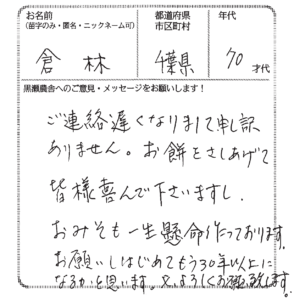 お名前
(苗字のみ・匿名・ニックネーム可)
都道府県
市区町村
年代
倉林
千葉県
70
才代
黒瀬農舎へのご意見・メッセージをお願いします!
ご連絡遅くなりまして申し訳
ありません。お餅をさしあげて
皆様喜んで下さいますし、
おみそも一生懸命作っております。
お願いしはじめてもう30年以上に
なるかと思います。又、よろしくお願い致します。